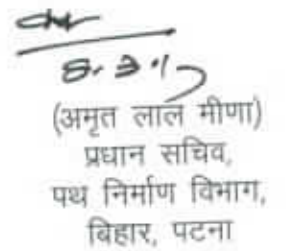 8.3.17
(अमृत लाल मीणा)
प्रधान सचिव,
पथ निर्माण विभाग,
बिहार, पटना